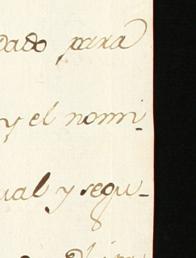 dado para
y el nomi-
ual y segu-